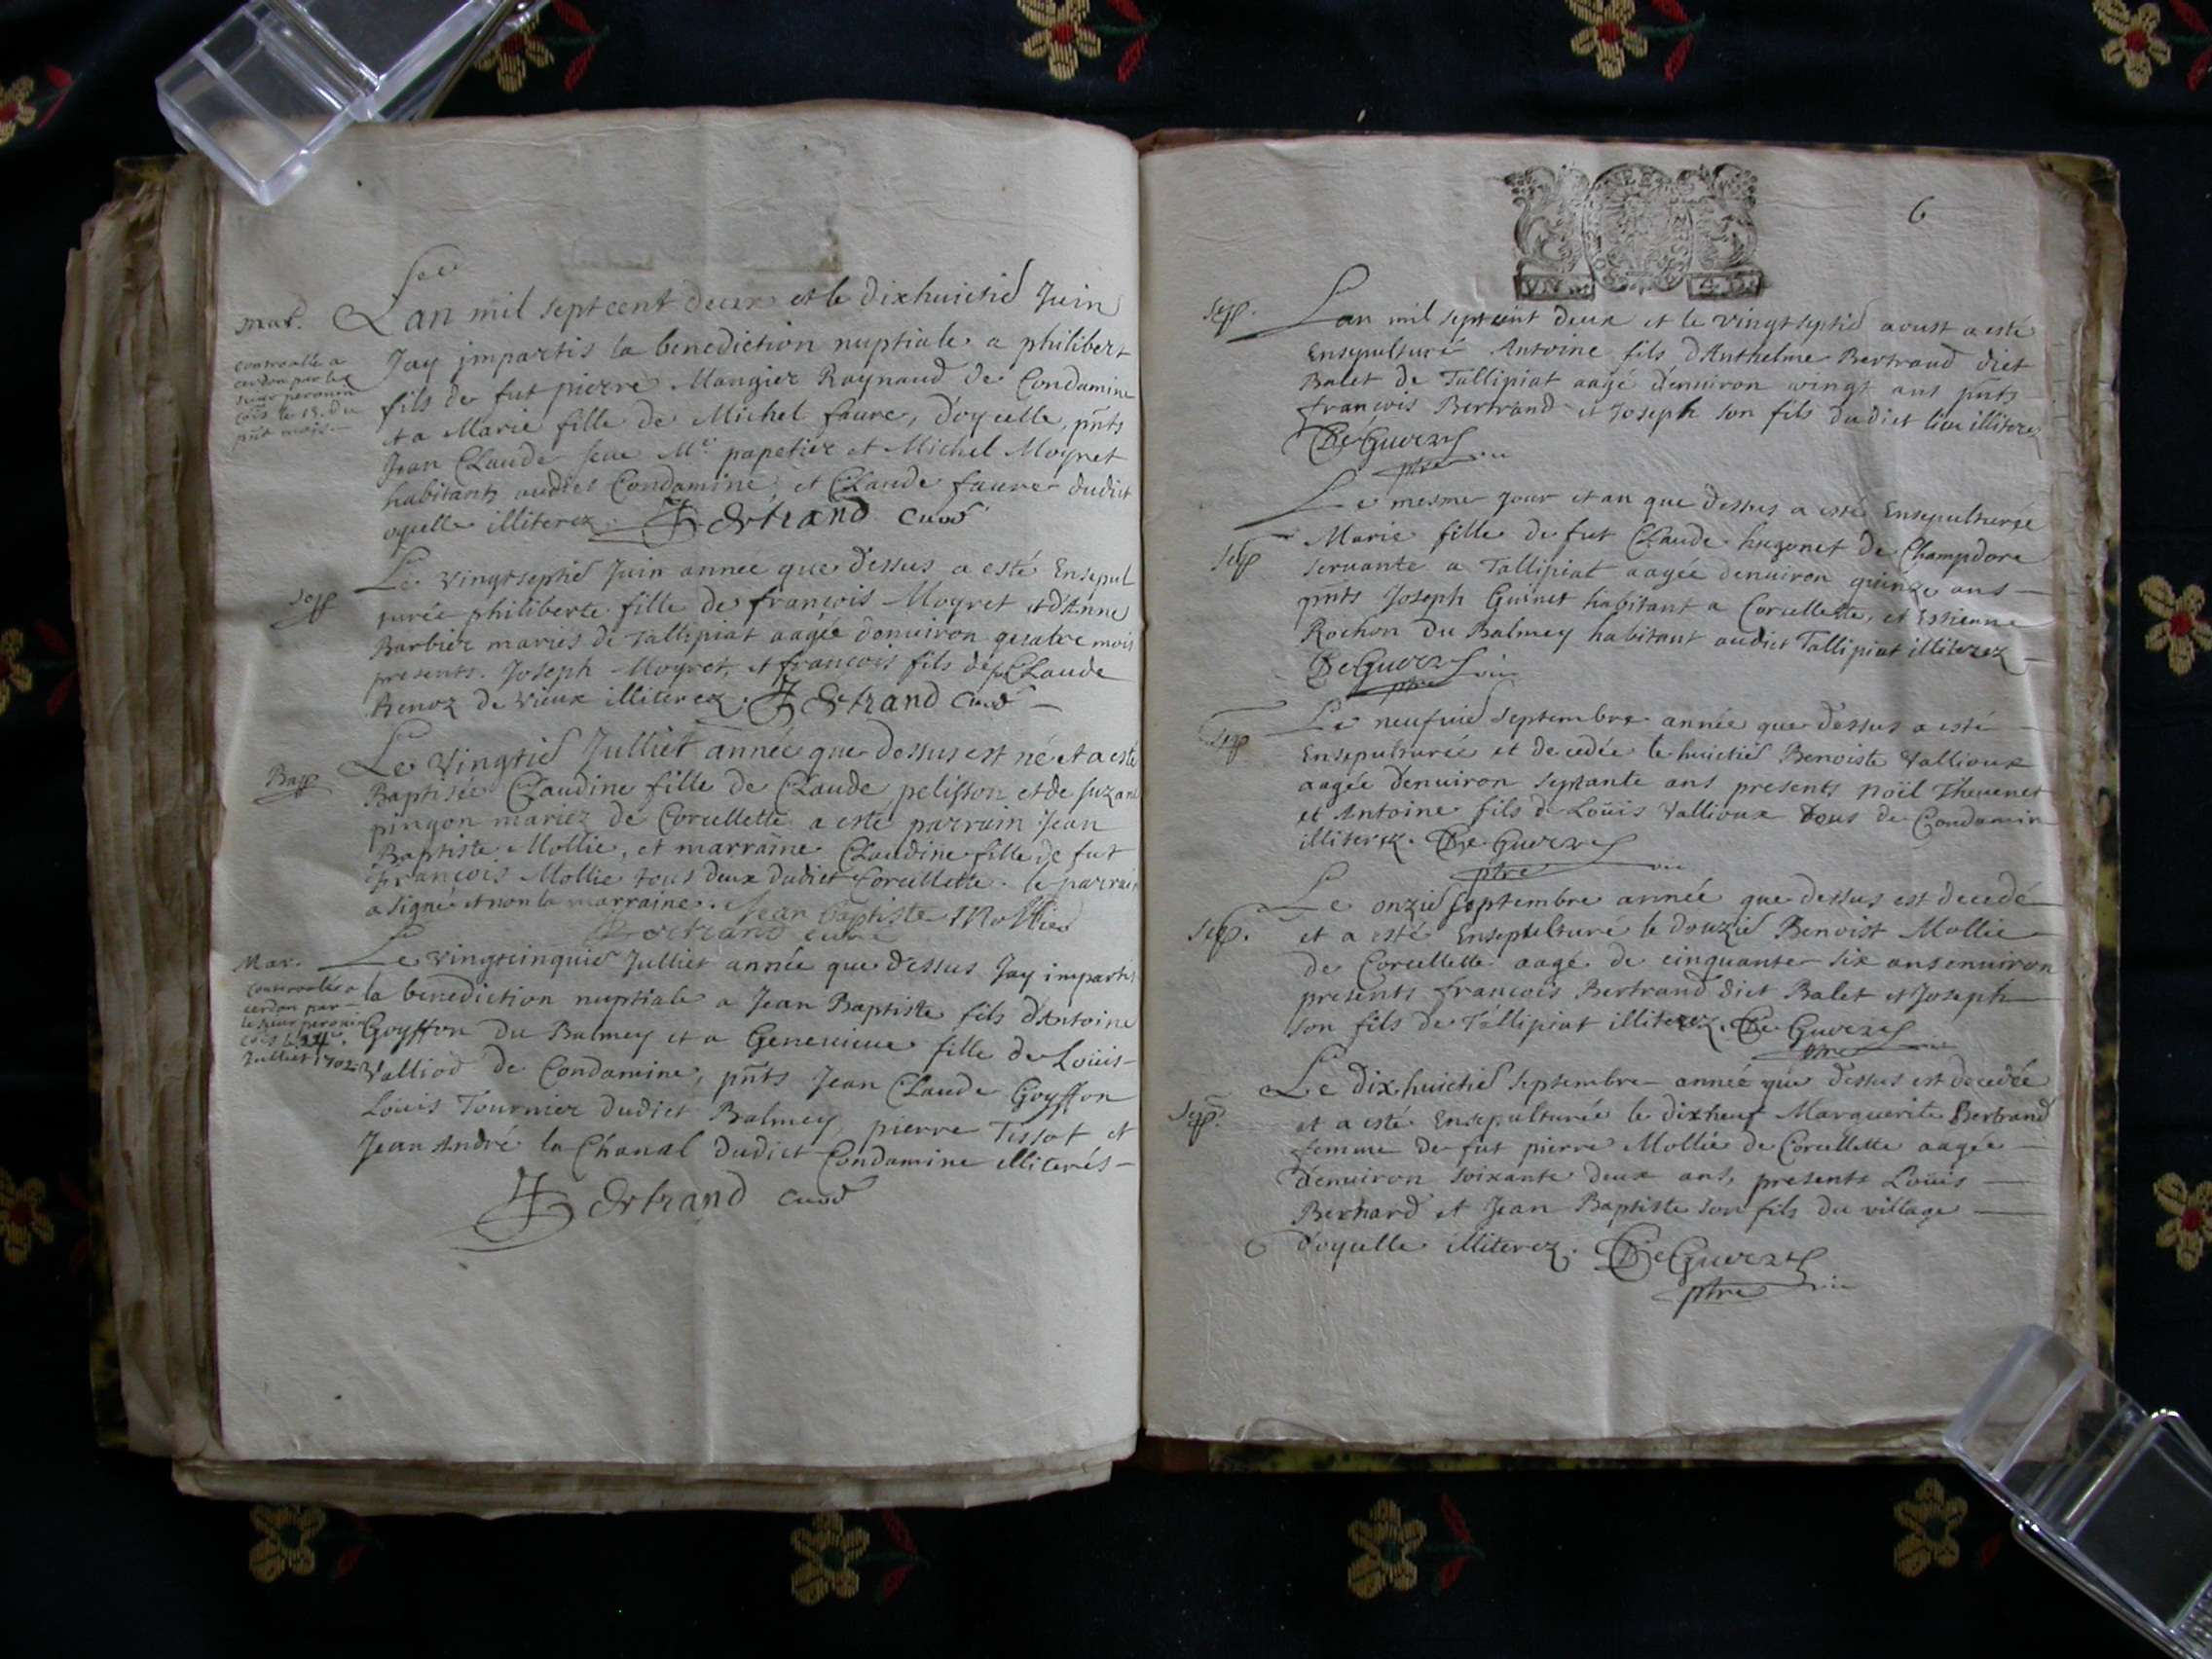 Mar.
Lan mil sept cent deux et le dixhuictie Juin
controollée a
cerdon par le
sieur perouin
cois le 13. du
pñt mois.
Jay impartis la benediction nuptiale a philibert
fils de fut pierre Mangier Raynaud de Condamine
et a Marie fille de Michel faure, d'oyselle, pñts
Jean Claude seue Me papetier et Michel Moyret
habitants audict Condamine, et Claude faure dudict
oyselle illiterez. Bertrand curé
Sep
Le vingtseptie Juin annee que dessus a esté Ensepul
turée philiberte fille de françois Moyret et d'Anne
Barbier mariés de Tallipiat aagée d'enuiron quatre mois
presents. Joseph Moyret, et françois fils de Claude
Benoz de vieux illiterez. Bertrand curé
Bap
Le Vingtie Julliet année que dessus est né et a esté
Baptisée Claudine fille de Claude pelisson et de suzane
pingon mariéz de Corcellette a esté parrain Jean
Baptiste Mollie, et marraine Claudine fille de fut
françois Mollie tous deux dudict Corcellette. le parrain
a signé et non la marraine. Jean baptiste Mollie
Bertrand curé
Mar.
Le vingtcinquie Julliet année que dessus Jay impartis
controollée a
cerdon par
le sieur perouin
Julliet 1702
la benediction nuptiale a Jean Baptiste fils d'Antoine
Goyffon du Balmey et a Geneuieue fille de Loüis
Valliod de Condamine, pñts Jean Claude Goyffon
Loüis Tournier dudict Balmey, pierre Tissot et
Jean André la Chanal dudict Condamine illiterés
Bertrand curé
6
VN 4.D.
Sep.
Lan mil sept cent deux et le vingtseptie aoust a esté
Ensepulturé Antoine fils d'Anthelme Bertrand dict
Balet de Tallipiat aagé d'enuiron vingt ans pñts
françois Bertrand et Joseph son fils dudict lieu illiterez
De Guerre
ptre vic
Le mesme jour et an que dessus a esté Ensepulturée
Sep
Marie fille de fut Claude hugonet de Champdore
seruante a Tallipiat aagée denuiron quinze ans
pñts Joseph Guinet habitant a Corcellette, et Estienne
Rochon du Balmey habitant audict Tallipiat illiterez
De Guerre
ptre vic
Sep
Le neufuie septembre année que dessus a esté
Ensepulturée et decedée le huictie Benoiste Vallioux
aagée denuiron septante ans presents noël Theuenet
et Antoine fils de Loüis Vallioux tous de Condamin
illiterez. De Guerre
ptre vic
Sep.
Le onzie septembre année que dessus est decedé
et a esté Ensepulturé le douzie Benoist Mollie
de Corcellette aagé de cinquante six ans enuiron
presents françois Bertrand dict Balet et Joseph
son fils de Tallipiat illiterez. De Guerre
ptre vic
Sep.
Le dixhuictie septembre année que dessus est decedée
et a esté Ensepulturée le dixneuf Marguerite Bertrand
femme de fut pierre Mollie de Corcellette aagée
d'enuiron soixante deux ans, presents Loüis
Bernard et Jean Baptiste son fils du village
d'oyselle illiterez. De Guerre
ptre vic